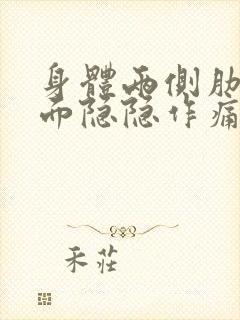 身體兩側肋
而隐隐作痛
禾莊